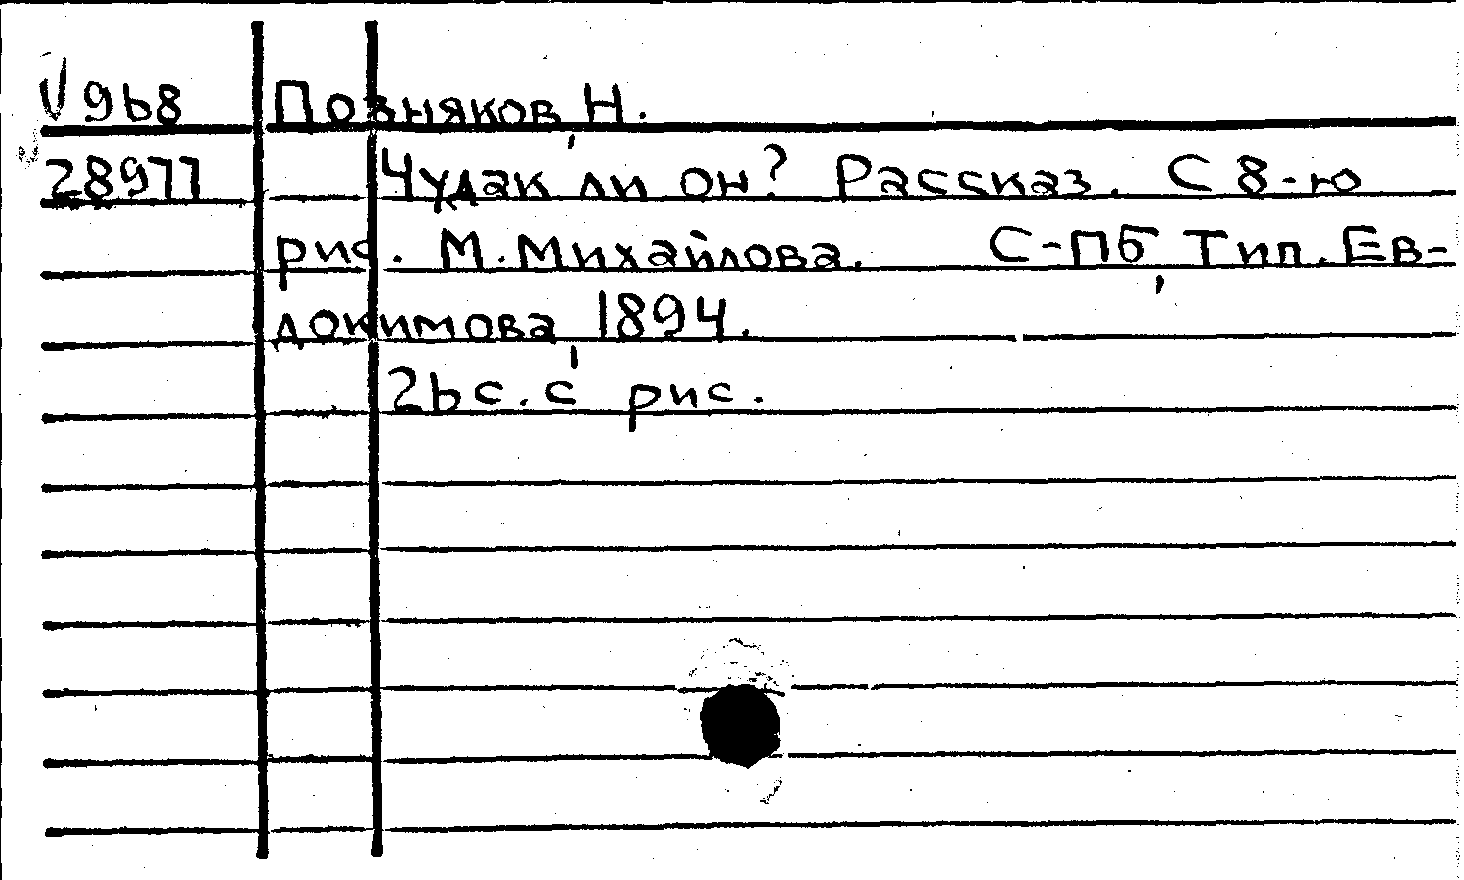 V 968 Позняков, Н.
28977 Чудак ли он? Рассказ. С 8-ю
рис. М. Михайлова. С-Пб, Тип. Ев-
докимова, 1894.
26 с. с рис.